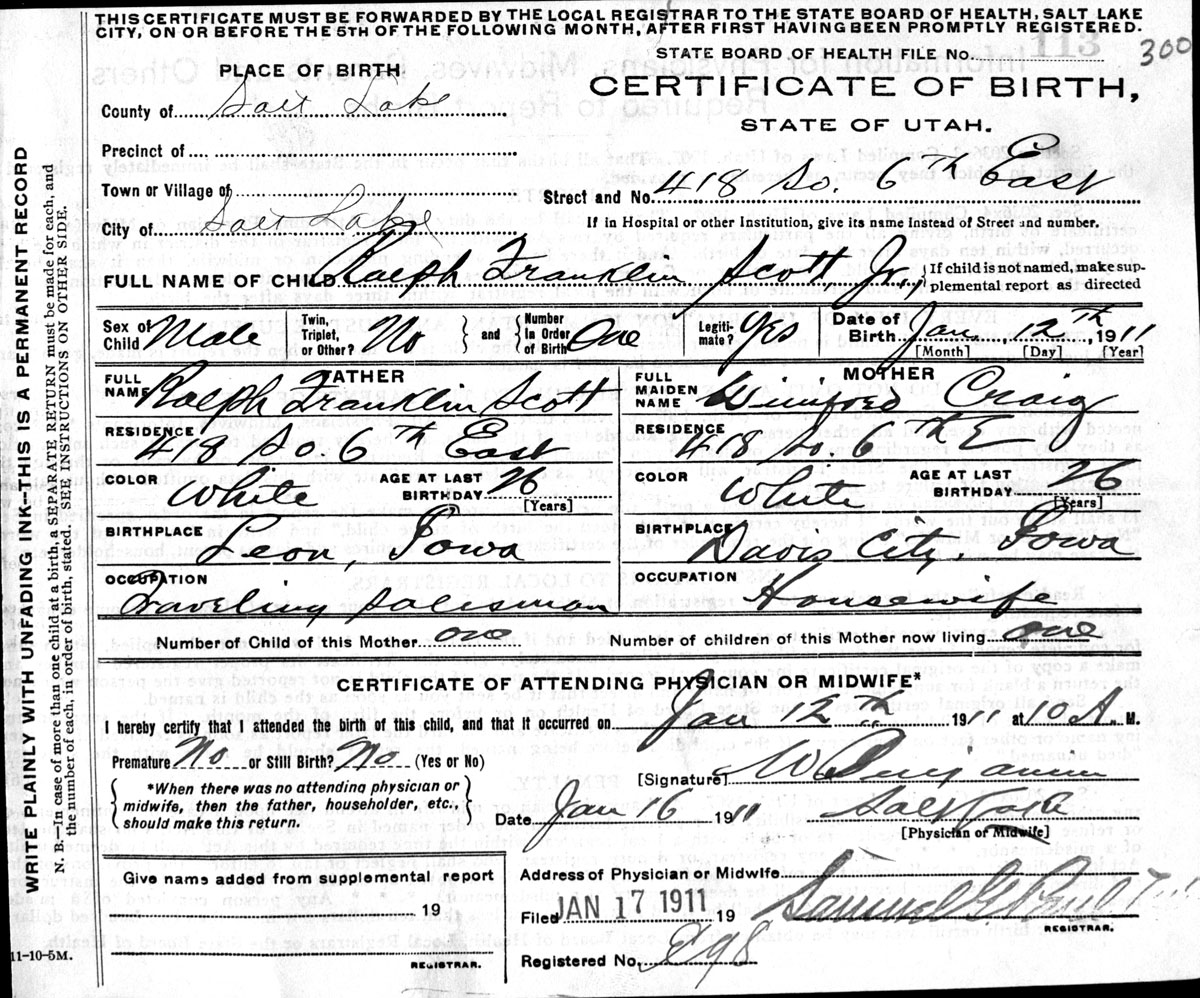 THIS CERTIFICATE MUST BE FORWARDED BY THE LOCAL REGISTRAR TO THE STATE BOARD OF HEALTH, SALT LAKE
CITY, ON OR BEFORE THE 5TH OF THE FOLLOWING MONTH, AFTER FIRST HAVING BEEN PROMPTLY REGISTERED.
STATE BOARD OF HEALTH FILE No. 113 300
PLACE OF BIRTH
CERTIFICATE OF BIRTH,
County of Salt Lake
STATE OF UTAH.
Precinct of
Town or Village of
Street and No. 418 So. 6th East
City of Salt Lake
If in Hospital or other Institution, give its name instead of Street and number.
FULL NAME OF CHILD Ralph Franklin Scott Jr., } If child is not named, make sup-
plemental report as directed
Sex of Child Male Twin, Triplet, or Other? No } and { Number in Order of Birth One Legiti- mate? Yes Date of Birth Jan, 12th, 1911
[Month] [Day] [Year]
FATHER
FULL NAME Ralph Franklin Scott
MOTHER
FULL MAIDEN NAME Winifred Craig
RESIDENCE 418 So. 6th East
RESIDENCE 418 So. 6th E
COLOR White AGE AT LAST BIRTHDAY 26 [Years]
COLOR White AGE AT LAST BIRTHDAY 26 [Years]
BIRTHPLACE Leon, Iowa
BIRTHPLACE Davis City, Iowa
OCCUPATION Traveling Salesman
OCCUPATION Housewife
Number of Child of this Mother one Number of children of this Mother now living one
CERTIFICATE OF ATTENDING PHYSICIAN OR MIDWIFE*
I hereby certify that I attended the birth of this child, and that it occurred on Jan 12th 1911 at 10 A. M.
Premature No or Still Birth? No (Yes or No)
[Signature]
{ *When there was no attending physician or
midwife, then the father, householder, etc.,
should make this return. }
Date Jan 16 1911
[Physician or Midwife]
Give name added from supplemental report
19
REGISTRAR.
Address of Physician or Midwife
Filed JAN 17 1911 19 Samuel G.
REGISTRAR.
Registered No.
11-10-5M.
WRITE PLAINLY WITH UNFADING INK--THIS IS A PERMANENT RECORD
N. B.--In case of more than one child at a birth, a SEPARATE RETURN must be made for each, and
the number of each, in order of birth, stated. SEE INSTRUCTION ON OTHER SIDE.